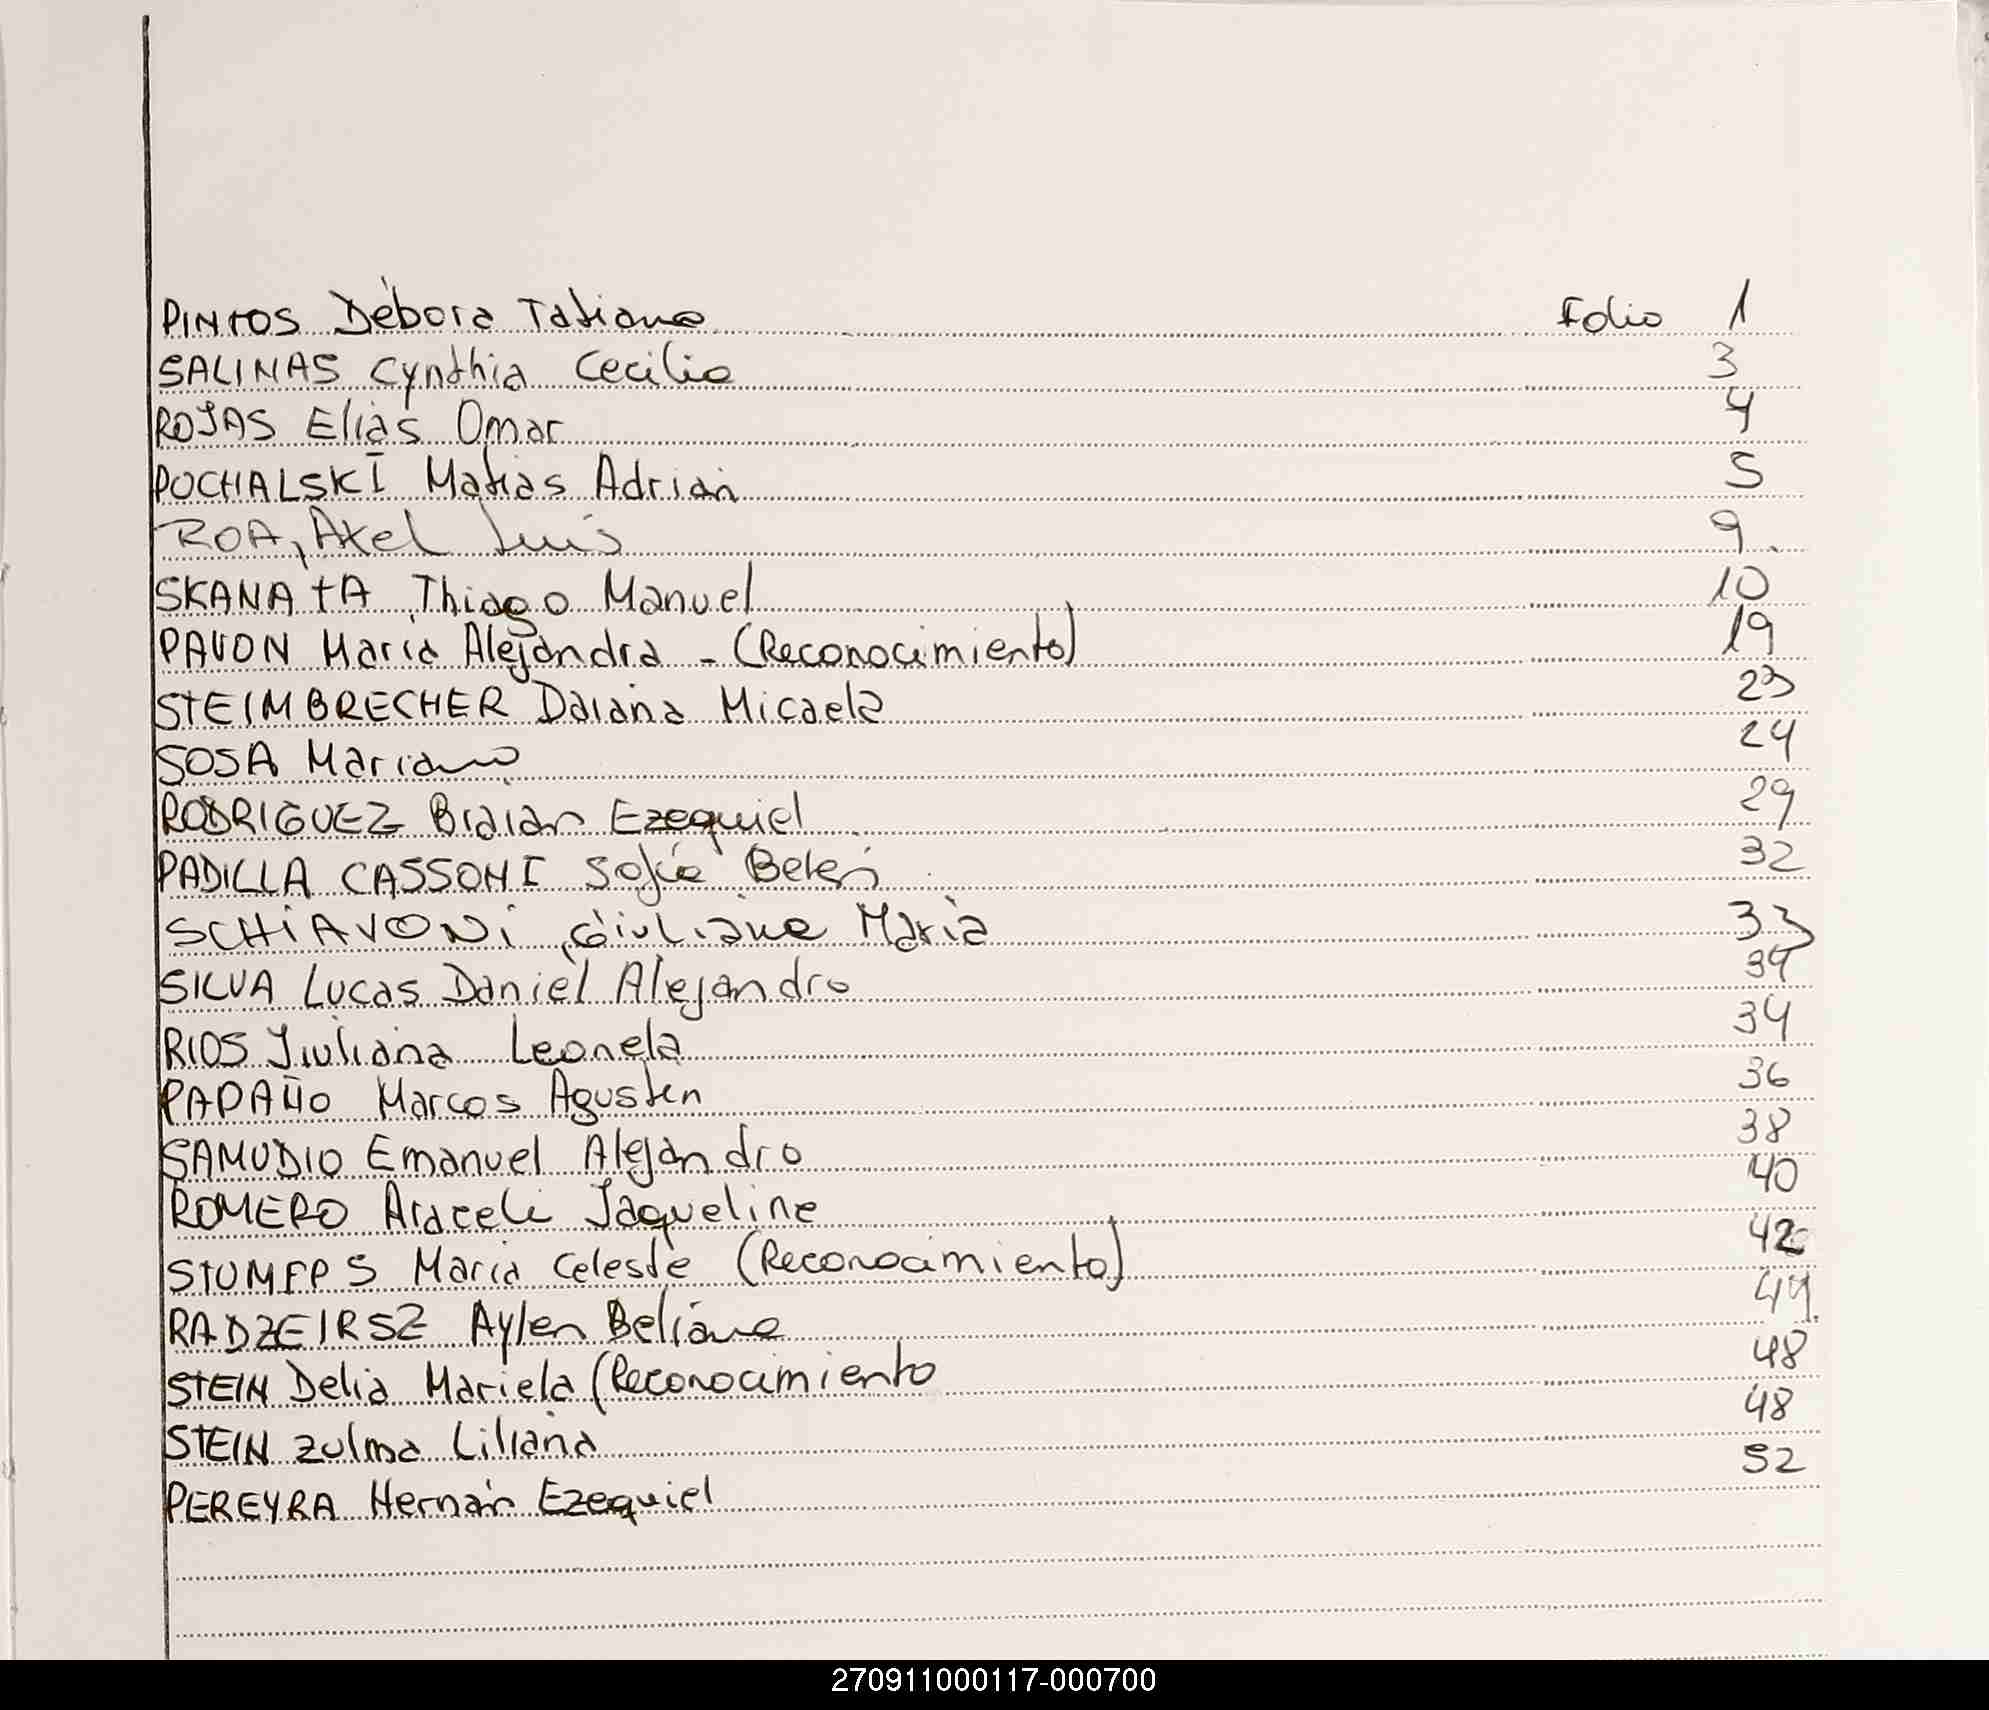 PINTOS Débora Tatiana Folio 1
SALINAS Cynthia Cecilia 3
ROJAS Elías Omar 4
POCHALSKI Matias Adrian 5
ROA, Axel Luis 9
SKANATA Thiago Manuel 10
PAVON María Alejandra - (Reconocimiento) 19
STEIMBRECHER Daiana Micaela 23
SOSA Mariano 24
RODRIGUEZ Braian Ezequiel 29
PADILLA CASSONI Sofía Belen 32
SCHIAVONI, Giuliana María 33
SILVA Lucas Daniel Alejandro 34
RIOS Yiuliana Leonela 34
PAPAÑO Marcos Agusten 36
SAMUDIO Emanuel Alejandro 38
ROMERO Araceli Jaqueline 40
STUMFPS María Celeste (Reconocimiento) 42
RADZEIRSZ Aylen Beliana 44
STEIN Delia Mariela (Reconocimiento 48
STEIN Zulma Liliana 48
PEREYRA Hernán Ezequiel 52
270911000117-000700